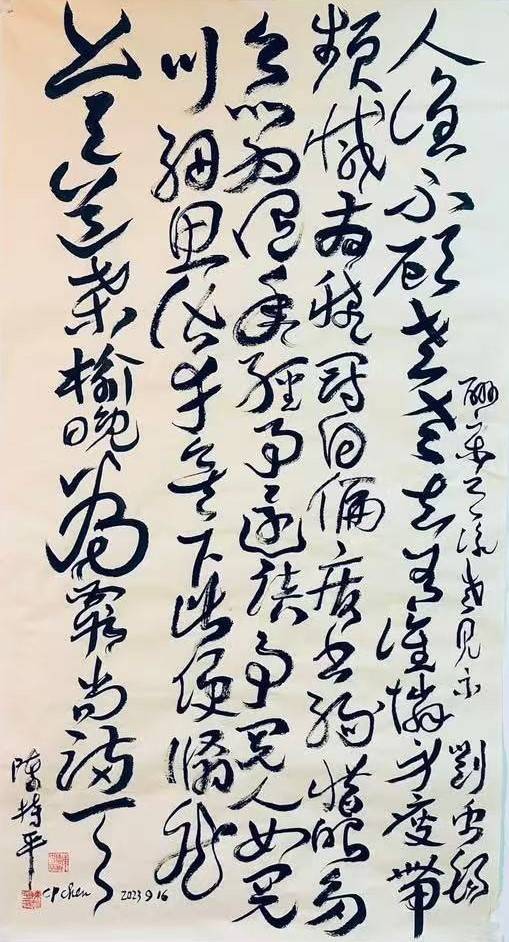 酬樂天詠老見示 劉禹錫
人誰不顧老老去有誰憐身瘦帶
頻減髮稀冠自偏廢書緣惜眼多
灸為隨年經事還諳事閱人如閱
川細思皆幸矣下此便翛然
莫道桑榆晚為霞尚滿天
陳持平
CP chen 2023 9 16